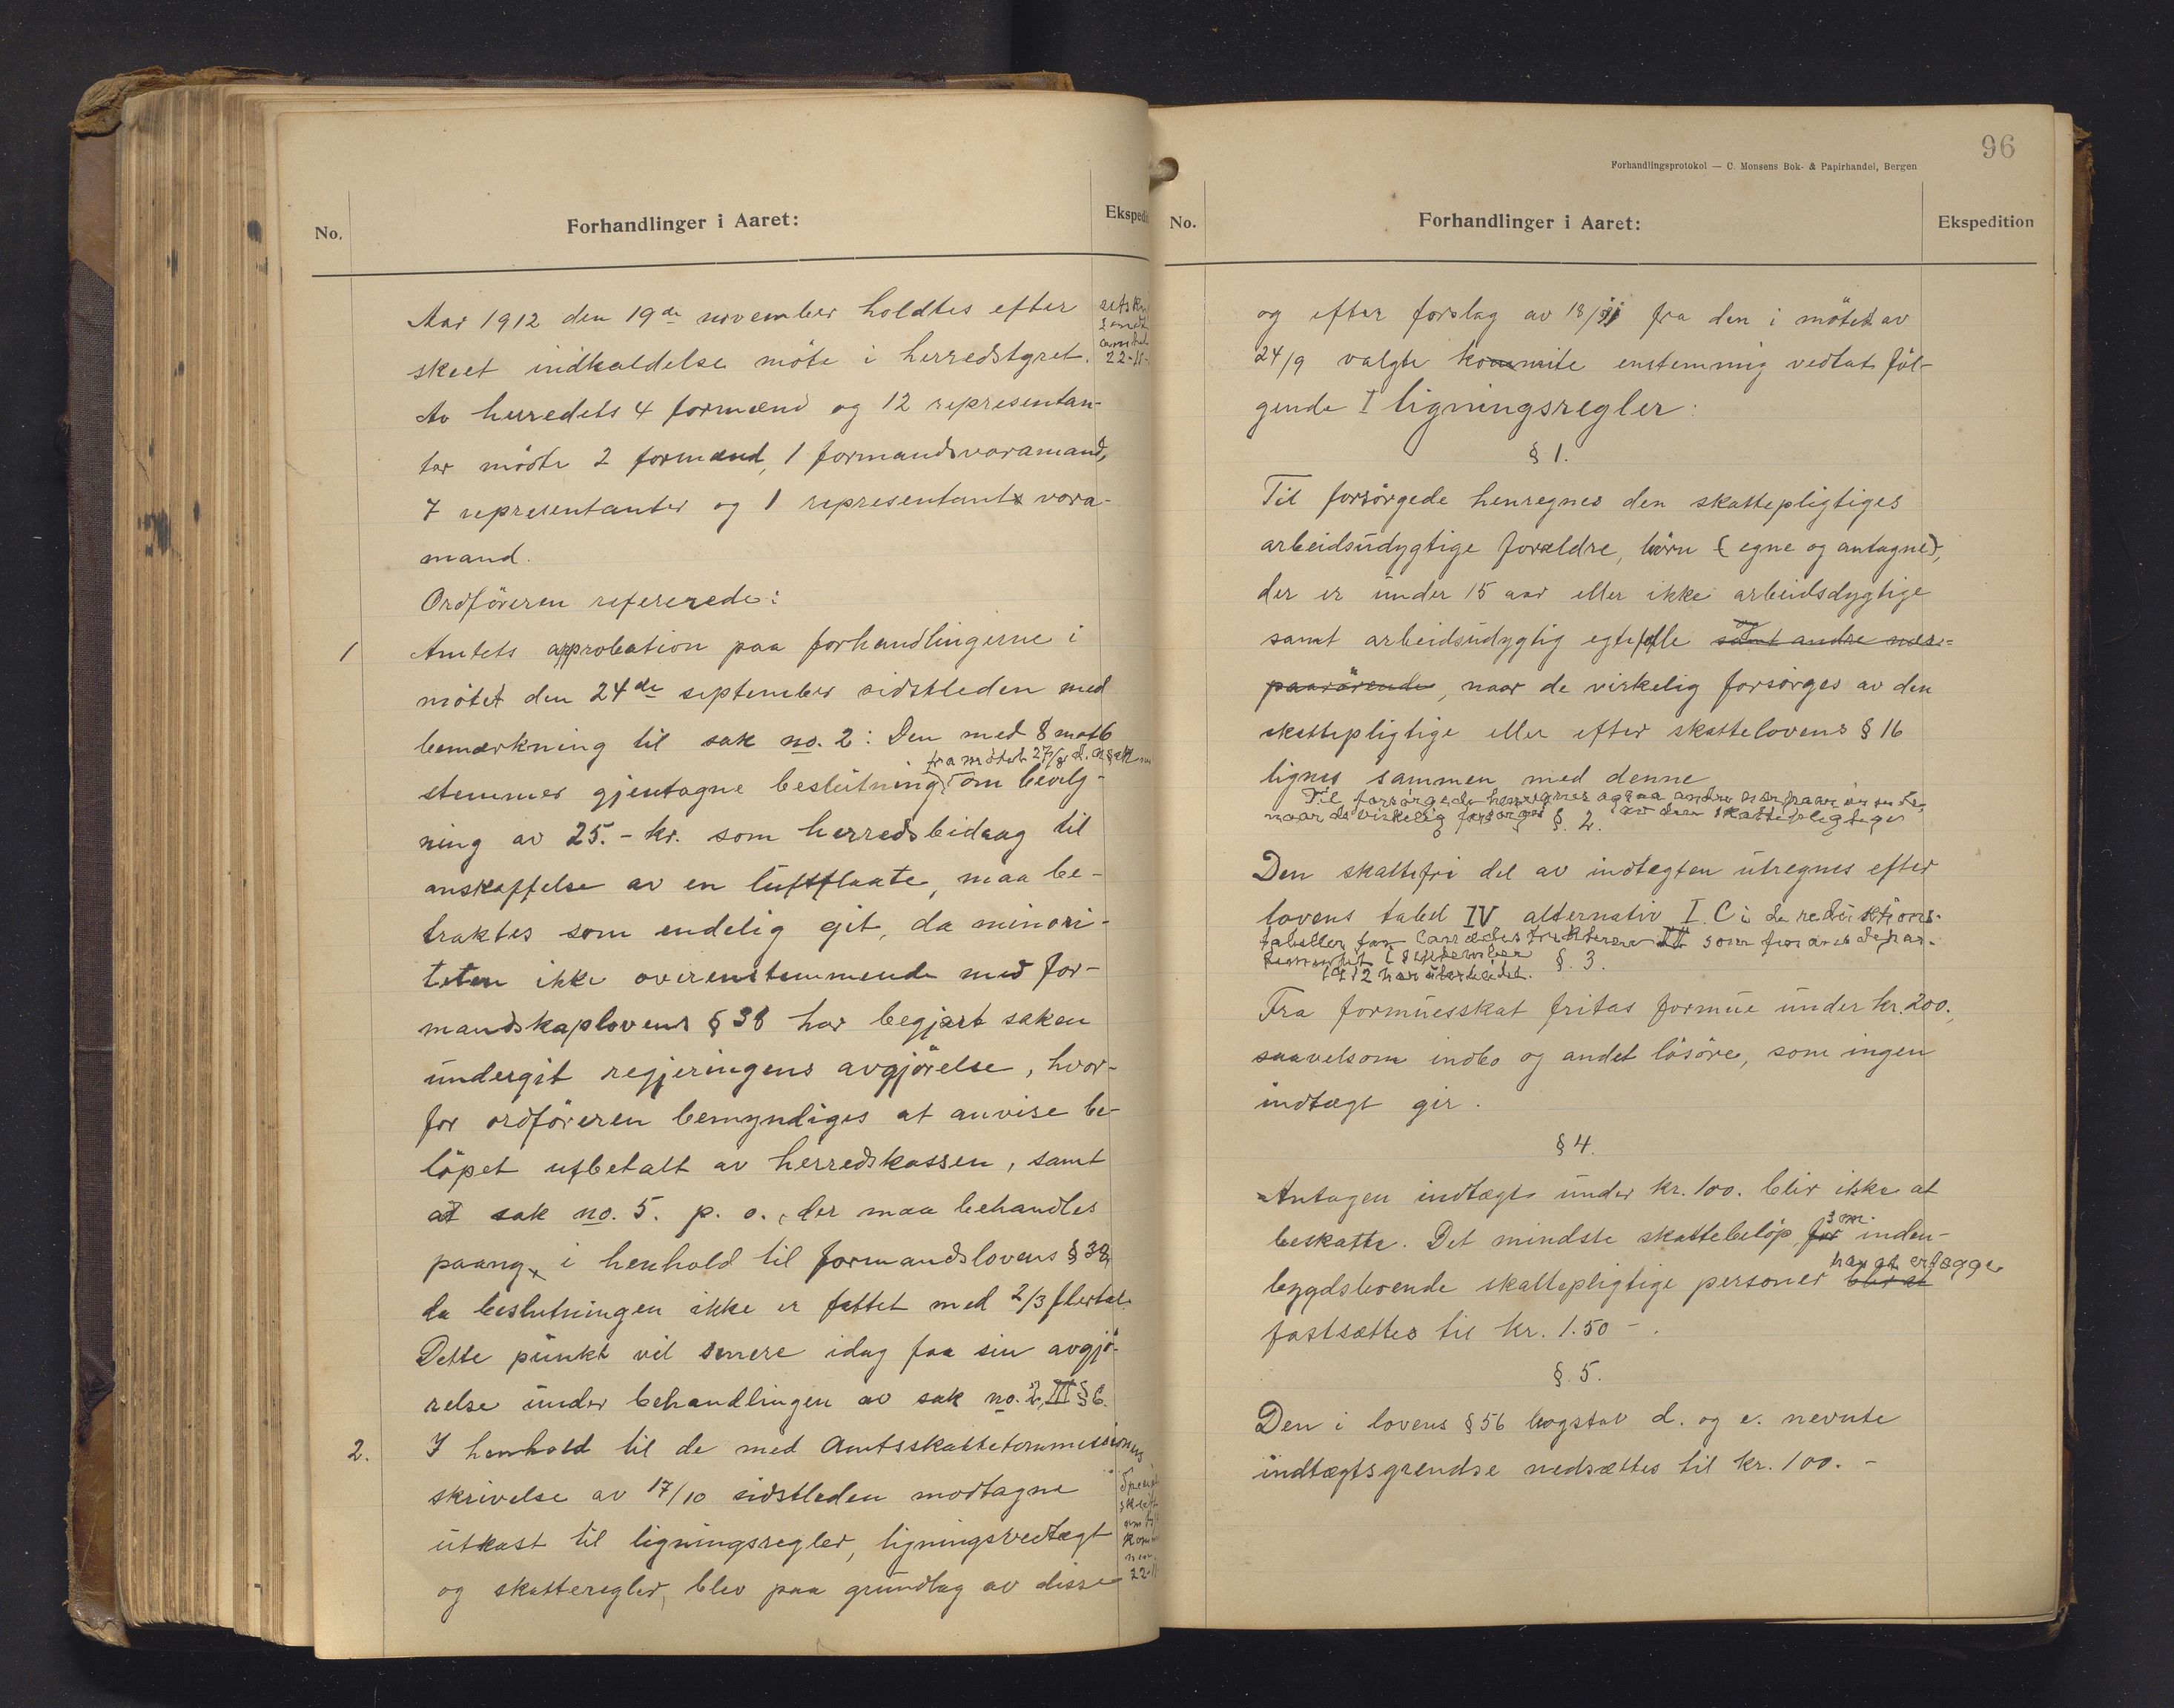 No.
Forhandlinger i Aaret:
Ekspedi
Aar 1912 den 19de november holdtes efter
skeet indkaldelse möte i herredstyret.
Av herredets 4 formænd og 12 representan-
ter mödte 2 formænd, 1 formandsvaramand,
7 representanter og 1 representants vara-
mand.
Ordföreren refererede:
1 Amtets approbation paa forhandlingerne i
mötet den 24de september sidstleden med
bemærkning til sak no. 2: Den med 8 mot 6
fra mötet 27/8 d. a. sak
stemmer gjentagne beslutning om bevilg-
ning av 25.- kr. som herredsbidrag til
anskaffelse av en luftflaate, maa be-
traktes som endelig git, da minori-
teten ikke overenstemmende med for-
mandskaplovens § 38 har begjært saken
undergit regjeringens avgjörelse, hvor-
for ordföreren bemyndiges at anvise be-
löpet utbetalt av herredskassen, samt
at sak no. 5. p. o., der maa behandles
paany, i henhold til formandslovens § 38,
da beslutningen ikke er fattet med 2/3 flertal.
Dette punkt vil senere idag faa sin avgjö-
relse under behandlingen av sak no. 2, III § 6.
2. I henhold til de med Amtsskattekommissionens
skrivelse av 17/10 sidstleden modtagne
utkast til ligningsregler, ligningsvedtægt
og skatteregler, blev paa grundlag av disse
22-11
96
Forhandlingsprotokol — C. Monsens Bok- & Papirhandel, Bergen
No.
Forhandlinger i Aaret:
Ekspedition
og efter forslag av 18/11 fra den i mötet av
24/9 valgte kommite enstemmig vedtat föl-
gende I ligningsregler:
§ 1.
Til forsörgede henregnes den skattepligtiges
arbeidsudygtige forældre, börn (egne og antagne),
der er under 15 aar eller ikke arbeidsdygtige
og
samt arbeidsudygtig egtefelle samt andre nær-
paarörende, naar de virkelig forsörges av den
skattepligtige eller efter skattelovens § 16
lignes sammen med denne
Til forsörgede henregnes ogsaa andre nærpaarörende,
naar de virkelig forsörges av den skattepligtige
§. 2.
Den skattefri del av indtægten utregnes efter
lovens tabel IV alternativ I. C i de reduktions-
tabeller for som finansdepar-
tementet i september
1912 har utarbeidet.
§. 3.
Fra formuesskat fritas formue under kr. 200.,
saavelsom indbo og andet lösöre, som ingen
indtægt gir.
§ 4.
Antagen indtægt under kr. 100. blir ikke at
som
beskatte. Det mindste skattebelöp, for inden-
har at erlægge
bygdsboende skattepligtige personer blir at
fastsættes til kr. 1.50 -.
§. 5.
Den i lovens § 56 bogstav d. og e. nevnte
indtægtsgrendse nedsættes til kr. 100. -